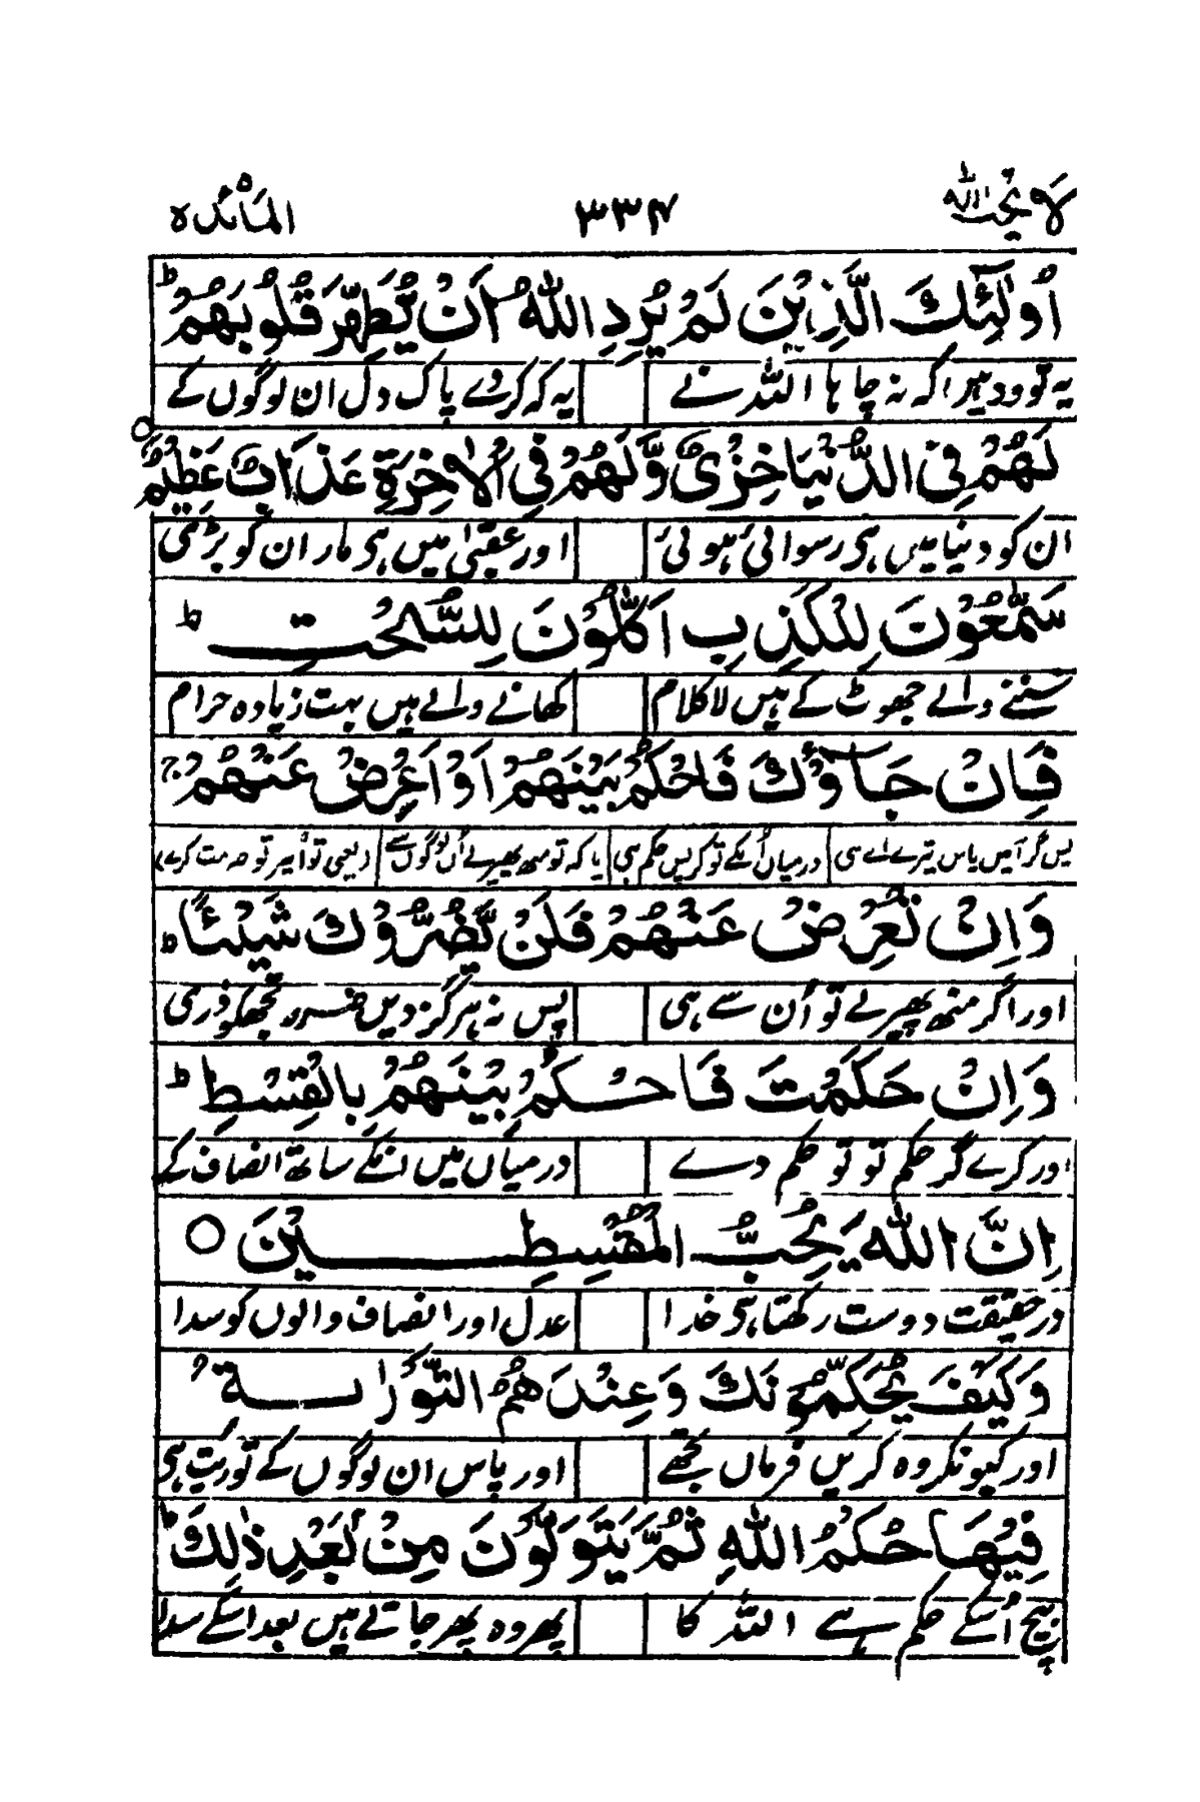 لا یحب اللہ ۳۳۴ المائدہ ۵
اُولٰٓئِكَ الَّذِیْنَ لَمْ یُرِدِ اللّٰهُ اَنْ یُّطَهِّرَ قُلُوْبَهُمْ ؕ
یہ تو وہ ہیں کہ نہ چاہا اللہ نے یہ کہ کر دے پاک دل ان لوگوں کے
لَهُمْ فِی الدُّنْیَا خِزْیٌ وَّ لَهُمْ فِی الْاٰخِرَةِ عَذَابٌ عَظِیْمٌ ○
ان کو دنیا میں ہی رسوائی ہوئی اور عقبیٰ میں ہی مار ان کو بڑی
سَمّٰعُوْنَ لِلْكَذِبِ اَكّٰلُوْنَ لِلسُّحْتِ ؕ
سننے والے جھوٹ کے ہیں لا کلام کھانے والے ہیں بہت زیادہ حرام
فَاِنْ جَآءُوْكَ فَاحْكُمْ بَیْنَهُمْ اَوْ اَعْرِضْ عَنْهُمْ ۚ
پس گر آئیں پاس تیرے اے سی درمیاں اُنکے تو کر پس حکم ہی یا کہ تو منھ پھیر لے اُن لوگوں سے (یعنی تو اُنپر توجہ مت کرے)
وَ اِنْ تُعْرِضْ عَنْهُمْ فَلَنْ یَّضُرُّوْكَ شَیْـًٔا ؕ
اور اگر منھ پھیر لے تو اُن سے ہی پس نہ ہرگز دیں ضرر تجھکو ذری
وَ اِنْ حَكَمْتَ فَاحْكُمْ بَیْنَهُمْ بِالْقِسْطِ ؕ
اور کرے گر حکم تو تو حکم دے درمیاں میں انکے ساتھ انصاف کے
اِنَّ اللّٰهَ یُحِبُّ الْمُقْسِطِیْنَ ○
در حقیقت دوست رکھتا ہی خدا عدل اور انصاف والوں کو سدا
وَ كَیْفَ یُحَكِّمُوْنَكَ وَ عِنْدَهُمُ التَّوْرٰىةُ
اور کیونکر وہ کریں فرماں تجھے اور پاس ان لوگوں کے توریت ہی
فِیْهَا حُكْمُ اللّٰهِ ثُمَّ یَتَوَلَّوْنَ مِنْۢ بَعْدِ ذٰلِكَ ؕ
بیچ اُسکے حکم ہے اللہ کا پھر وہ پھر جاتے ہیں بعد اسکے سدا